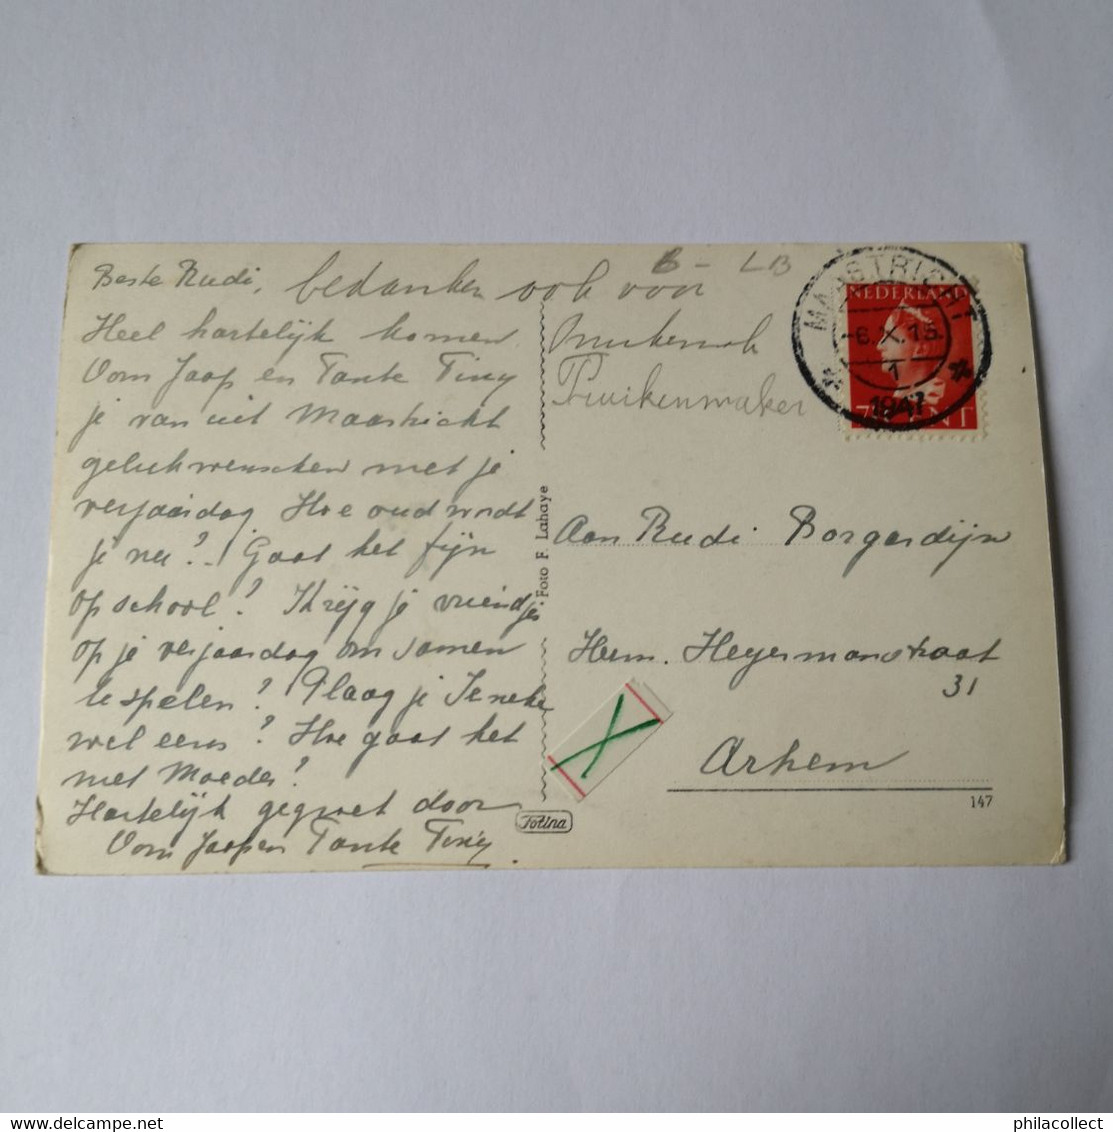 Beste Rudi,
Heel hartelijk komen
Oom Jaap en Tante Tiny
je van uit Maastricht
gelukwenschen met je
verjaardag. Hoe oud wordt
je nu? Gaat het fijn
op school? Krijg je vriendjes
op je verjaardag om samen
te spelen? Plaag je Ineke
wel eens? Hoe gaat het
met Moeder?
Hartelijk gegroet door
Oom Jaap en Tante Tiny.
bedanken ook voor
Pruikenmaker
B - LB
MAASTRICHT
-6.X.15.
1
1947
NEDERLAND
7½ CENT
Foto F. Lahaye
Aan Rudi Borgerdijn
Herm. Heyermanstraat
31
Arhem
147
philacollect